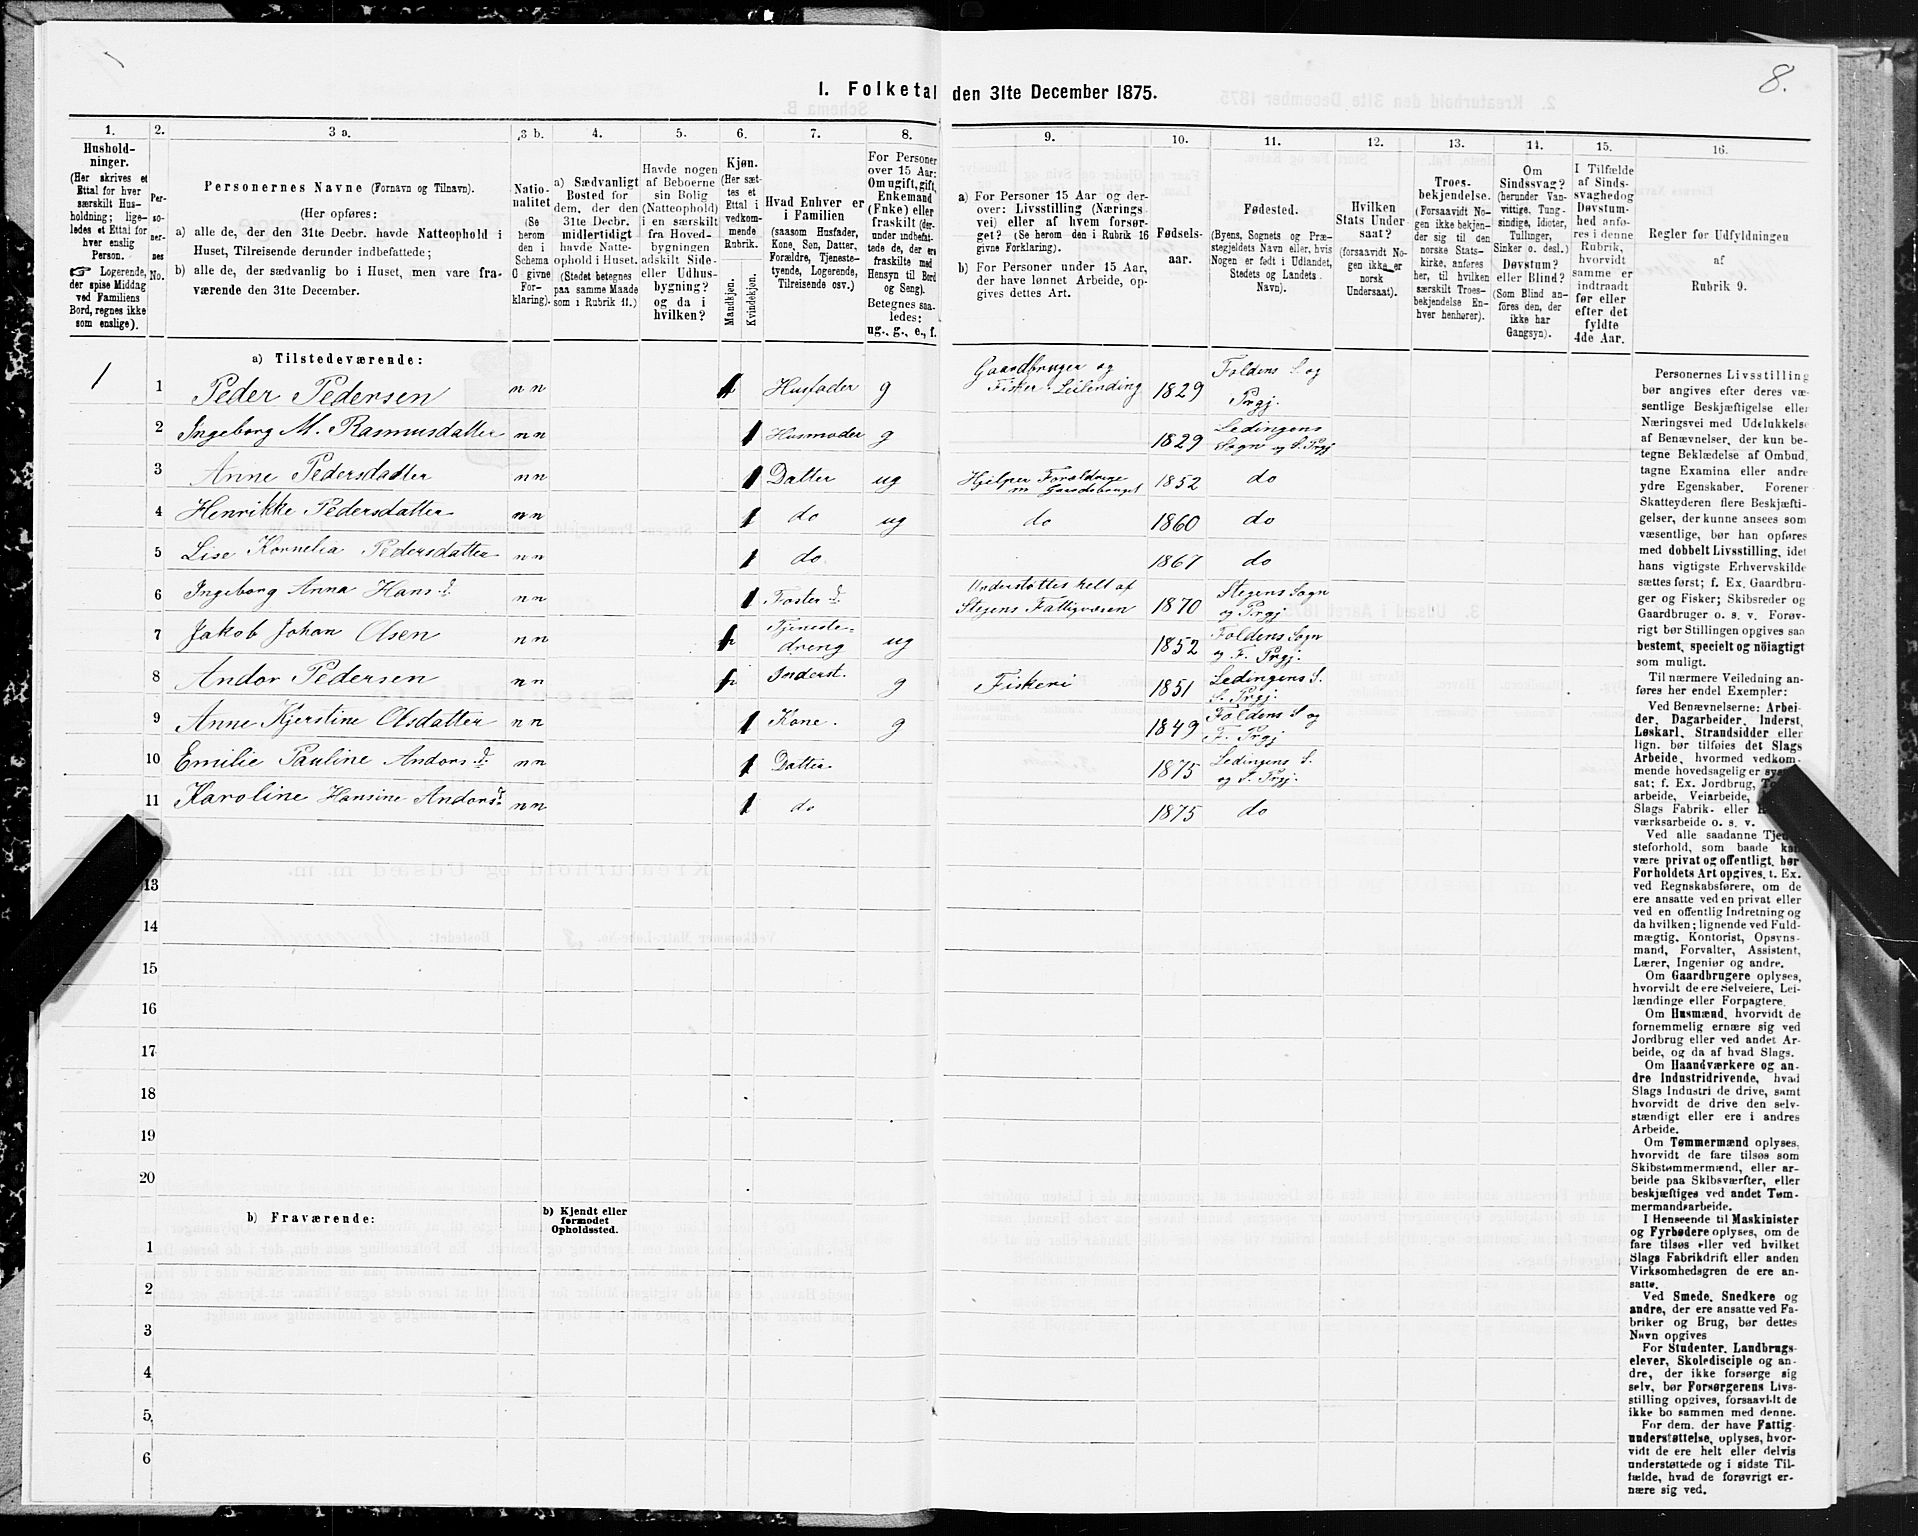 8.
1. Folketal den 31te December 1875.
1.
Husholdninger.
(Her skrives et
Ettal for hver
særskilt Husholdning;
ligeledes et Ettal for
hver enslig
Person.
☞ Logerende,
der spise Middag
ved Familiens
Bord, regnes ikke
som enslige).
2.
Personernes
No.
3 a.
Personernes Navne (Fornavn og Tilnavn).
(Her opføres:
a) alle de, der den 31te Decbr. havde Natteophold i
Huset, Tilreisende derunder indbefattede;
b) alle de, der sædvanlig bo i Huset, men vare fraværende
den 31te December.
3 b.
Nationalitet
(Se
herom
den i
Schema
O givne
Forklaring).
4.
a) Sædvanligt
Bosted for
dem, der den
31te Decbr.
midlertidigt
havde Natteophold
i Huset.
(Stedet betegnes
paa samme Maade
som i Rubrik 11.)
5.
Havde nogen
af Beboerne
sin Bolig
(Natteophold)
i en særskilt
fra Hovedbygningen
adskilt Side-
eller Udhusbygning?
og da i
hvilken?
6.
Kjøn.
(Her sættes
et
Ettal i
vedkommende
Rubrik.
Mandkjøn.
Kvindekjøn.
7.
Hvad Enhver er
i Familien
(saasom Husfader,
Kone, Søn, Datter,
Forældre, Tjenestetyende,
Logerende,
Tilreisende osv.)
8.
For Personer
over 15 Aar:
Om ugift, gift,
Enkemand
(Enke) eller
fraskilt (derunder
indbefattede
de, der ere
fraskilte med
Hensyn til Bord
og Seng).
Betegnes saaledes:
ug., g., e., f.
9.
a) For Personer 15 Aar og derover:
Livsstilling (Næringsvei)
eller af hvem forsørget?
(Se herom den i Rubrik 16
givne Forklaring).
b) For Personer under 15 Aar,
der have lønnet Arbeide, opgives
dettes Art.
10.
Fødselsaar.
11.
Fødested.
(Byens, Sognets og Præstegjeldets
Navn eller, hvis
Nogen er født i Udlandet,
Stedets og Landets
Navn).
12.
Hvilken
Stats Undersaat?
(forsaavidt Nogen
ikke er
norsk
Undersaat).
13.
Troesbekjendelse.
(Forsaavidt Nogen
ikke bekjender
sig til den
norske Statskirke,
anføres
her, til hvilken
særskilt Troesbekjendelse
Enhver
henhører).
14.
Om
Sindssvag?
(herunder Vanvittige,
Tungsindige,
Idioter,
Tullinger,
Sinker o. desl.)
Døvstum?
eller Blind?
(Som Blind anføres
den, der
ikke har
Gangsyn).
15.
I Tilfælde
af Sindssvaghed
og
Døvstumhed
anføres
i denne
Rubrik,
hvorvidt
samme er
indtraadt
før eller
efter det
fyldte
4de Aar.
16.
Regler for Udfyldningen
af
Rubrik 9.
a) Tilstedeværende:
1 1 Peder Pedersen nn 1 Husfader g Gaardbruger og Fisker Leilending 1829 Foldens S og Prgj.
2 Ingeborg M. Rasmusdatter nn 1 Husmoder g 1829 Lødingens Sogn og L. Prgj
3 Anne Pedersdatter nn 1 Datter ug Hjelper Forældrene m Gaardsbruget 1852 do
4 Henrikke Pedersdatter nn 1 do ug do 1860 do
5 Lise Kornelia Pedersdatter nn 1 do. 1867 do
6 Ingeborg Anna Hans d. nn 1 Foster d. Understøttes helt af Stegens Fattigvæsen 1870 Stegens Sogn og Prgj
7 Jakob Johan Olsen nn 1 Tjenestedreng ug 1852 Foldens Sogn og F. Prgj.
8 Andor Pedersen nn 1 Inderst. g Fiskeri 1851 Lødingens S. L. Prgj
9 Anne Kjerstine Olsdatter nn 1 Kone. g 1849 Foldens S og F. Prgj
10 Emilie Pauline Andors d. nn 1 Datter 1875 Lødingens S. og L. Prgj.
11 Karoline Hansine Andorsd. nn 1 do 1875 do
13
14
15
16
17
18
19
20
b) Fraværende:
b) Kjendt eller
formodet
Opholdssted.
1
2
3
4
5
6
Personernes Livsstilling
bør angives efter deres væsentlige
Beskjæftigelse eller
Næringsvei med Udelukkelse
af Benævnelser, der kun betegne
Beklædelse af Ombud,
tagne Examina eller andre
ydre Egenskaber. Forener
Skatteyderen flere Beskjæftigelser,
der kunne ansees som
væsentlige, bør han opføres
med dobbelt Livsstilling, idet
hans vigtigste Erhvervskilde
sættes først; f. Ex. Gaardbruger
og Fisker; Skibsreder og
Gaardbruger o. s. v. Forøvrigt
bør Stillingen opgives saa
bestemt, specielt og nöiagtigt
som muligt.
Til nærmere Veiledning anføres
her endel Exempler:
Ved Benævnelserne: Arbeider,
Dagarbeider, Inderst,
Løskarl, Strandsidder eller
lign. bør tilføies det Slags
Arbeide, hvormed vedkommende
hovedsagelig er syssat;
f. Ex. Jordbrug,
arbeide, Veiarbeide,
Slags Fabrik- eller
værksarbeide o. s. v.
Ved alle saadanne Tjenesteforhold,
som baade kan
være privat og offentligt, bør
Forholdets Art opgives, t. Ex.
ved Regnskabsførere, om de
ere ansatte ved en privat eller
ved en offentlig Indretning og
da hvilken; lignende ved Fuldmægtig,
Kontorist, Opsynsmand,
Forvalter, Assistent,
Lærer, Ingeniør og andre.
Om Gaardbrugere oplyses,
hvorvidt de ere Selveiere, Leilændinge
eller Forpagtere.
Om Husmænd, hvorvidt de
fornemmelig ernære sig ved
Jordbrug eller ved andet Arbeide,
og da af hvad Slags.
Om Haandværkere og andre
Industridrivende, hvad
Slags Industri de drive, samt
hvorvidt de drive den selvstændigt
eller ere i andres
Arbeide.
Om Tømmermænd oplyses,
hvorvidt de fare tilsøs som
Skibstømmermænd, eller arbeide
paa Skibsværfter, eller
beskjæftiges ved andet Tømmermandsarbeide.
I Henseende til Maskinister
og Fyrbødere oplyses, om de
fare tilsøs eller ved hvilket
Slags Fabrikdrift eller anden
Virksomhedsgren de ere ansatte.
Ved Smede, Snedkere og
andre, der ere ansatte ved Fabriker
og Brug, bør dettes
Navn opgives
For Studenter, Landbrugselever,
Skoledisciple og andre,
der ikke forsørge sig
selv, bør Forsørgerens Livsstilling
opgives, forsaavidt de
ikke bo sammen med denne.
For dem, der have Fattigunderstøttelse,
oplyses, hvorvidt
de ere helt eller delvis
understøttede og i sidste Tilfælde,
hvad de forøvrigt ernære
sig ved.